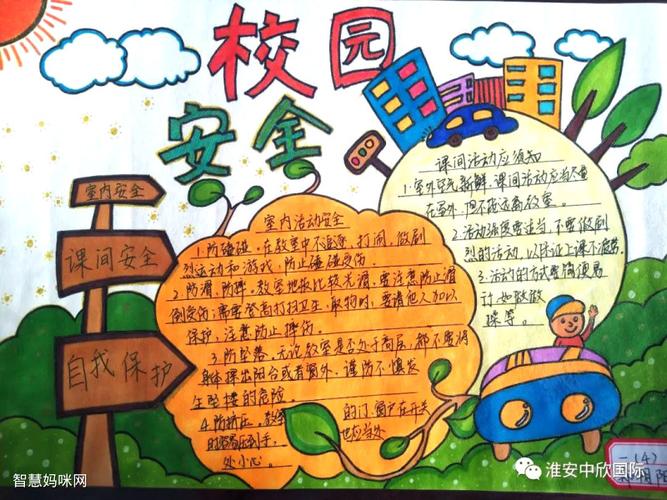 校园
安全
室内安全
课间安全
自我保护
室内活动安全
1.防碰碰,在教室中不追逐,打闹,做剧
烈运动和游戏,防止碰碰受伤
2.防滑、防摔,教室地板比较光滑,要注意防止滑
倒受伤;需要登高打扫卫生、取物时,要请他人加以
保护,注意防止摔伤。
3.防坠落,无论教室是否处于高层,都不要将
身体探出阳台或者窗外,谨防不慎发
生坠楼的危险
4.防挤压,教室的门、窗户在开关
时容易压到手,也应当处
处小心。
课间活动应须知
1.室外空气新鲜,课间活动应当尽量
在室外,但不要远离教室。
2.活动强度要适当,不要做剧
烈的活动,以保证上课不疲惫。
3.活动的方式要简便易
计如做做
操等。
二(4)
智慧妈咪网
淮安中欣国际